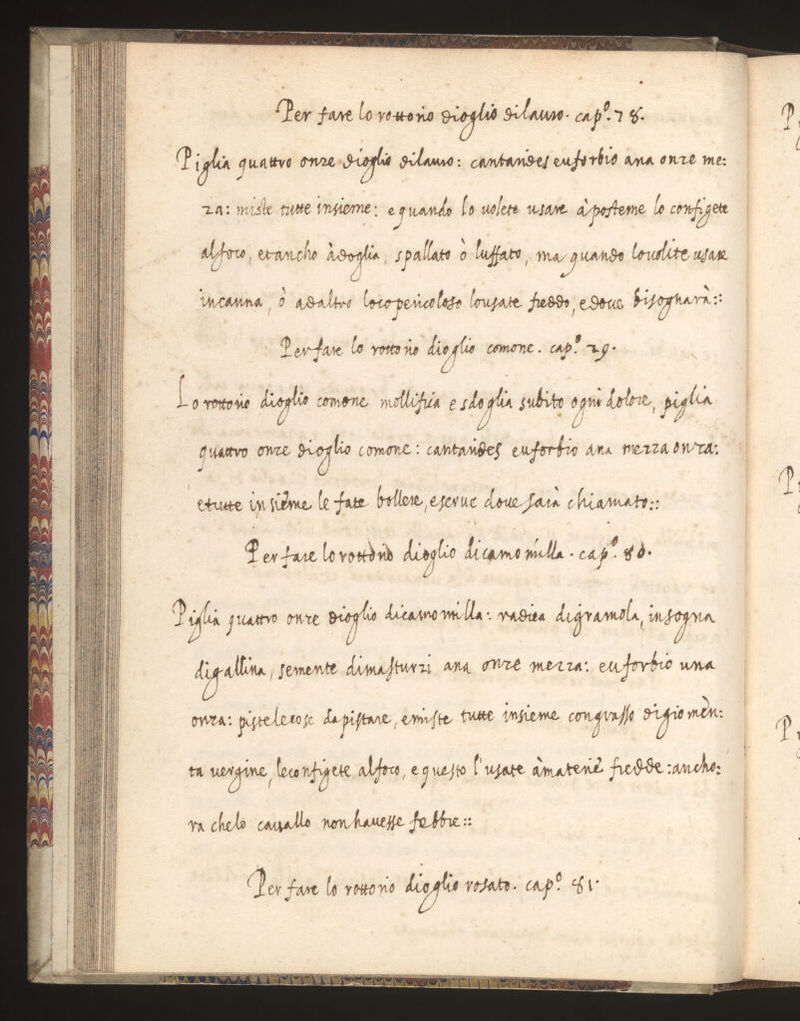 Per fare lo rottorio dioglio dilauro. cap.º 78.
Piglia quattro onze dioglio dilauro: cantarides euforbio ana onze me:
za: miste tutte insieme: e quando lo uolete usare àposteme lo configete
alfoco, etancho àdoglia, spallato ò luffato, ma quando louolite usare
incanna, ò adaltro locopericoloso lousate freddo, edoue bisognarà::
Per fare lo rottorio dioglio comone. cap.º 79.
Lo rottorio dioglio comone mollifica e sdoglia subito ogni dolore, piglia
quattro onze dioglio comone: cantarides euforbio ana mezza onza:
etutte insieme le fate bollere, eserue doue sarà chiamato::
Per fare lo rottorio dioglio dicamomilla. cap.º 80.
Piglia quattro onze dioglio dicamomilla: radica digramola, insogna
digallina, semente dimasturzi ana onze mezza: euforbio una
onza: pistelecose dapistare, emiste tutte insieme congrasso digiomen:
ta uergine, leconfigete alfoco, e questo l'usate àmaterie fredde: ancho:
ra chelo cauallo non hauesse febbre::
Per fare lo rottorio dioglio rosato. cap.º 81.